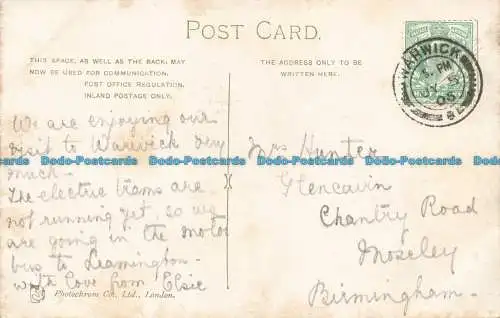 POST CARD.
THIS SPACE, AS WELL AS THE BACK, MAY
NOW BE USED FOR COMMUNICATION.
POST OFFICE REGULATION.
INLAND POSTAGE ONLY.
THE ADDRESS ONLY TO BE
WRITTEN HERE.
WARWICK
We are enjoying our
visit to Warwick very
much.
The electric trams are
not running yet, so we
are going in the motor
bus to Leamington.
with love from Elsie
Mrs Hunter
Glencavin
Chantry Road
Moseley
Birmingham.
Photochrom Co., Ltd., London.
Dodo-Postcards Dodo-Postcards Dodo-Postcards Dodo-Postcards Dodo-Postcards